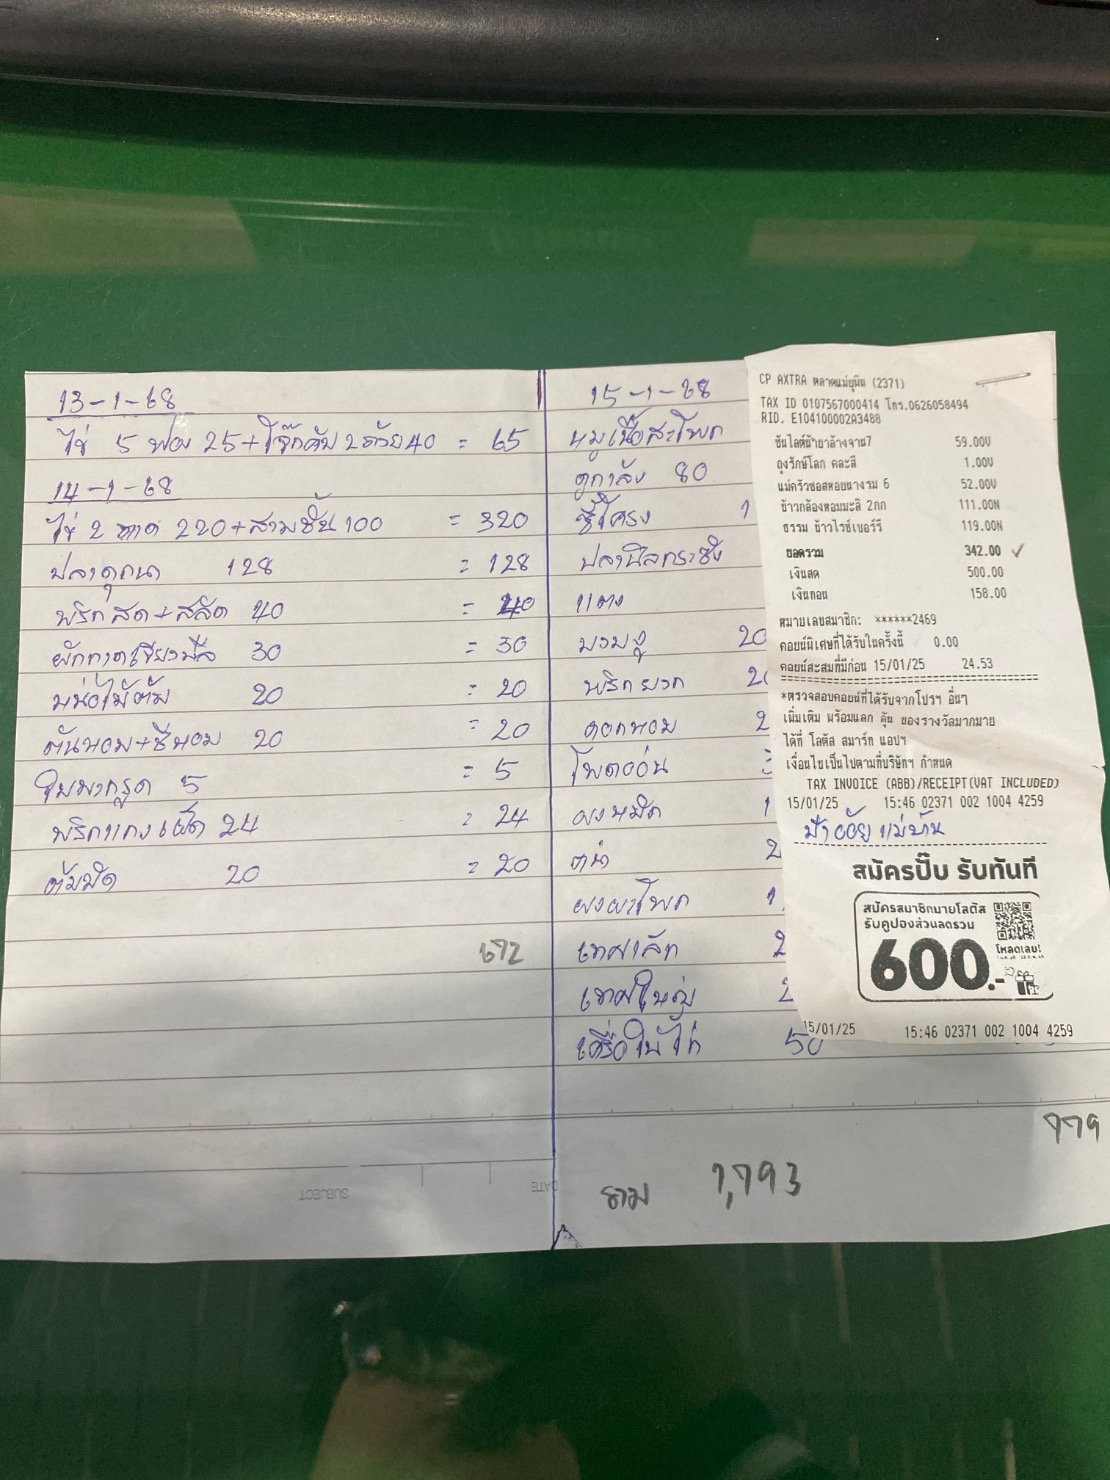 13-1-68
ไข่ 5 ฟอง 25+โจ๊กคัพ 2 ถ้วย 40 = 65
14-1-68
ไข่ 2 ถาด 220+สามชั้น 100 = 320
ปลาดุกนา 128 = 128
พริกสด+สลัด 40 = 40
ผักกาดเขียว 30 = 30
หน่อไม้ต้ม 20 = 20
ต้นหอม+ชีหอม 20 = 20
ใบมะกรูด 5 = 5
พริกแกงเผ็ด 24 = 24
ต้มมัด 20 = 20
692
15-1-68
หมูเนื้อสะโพก
ดูกาลัง 80
ซี่โครง 1
ปลานิลกระชัง
แตง
บวบงู 20
พริกยวก
ดอกหอม 2
โพดอ่อน
ผงหมัก 1
คน้า 2
ผงกะโพก 1
เทศเล็ก 2
เทศใหญ่ 2
เครื่องในไก่ 50
779
รวม 1,793
SUBJECT
DATE
CP AXTRA ตลาดแม่ยูนิน (2371)
TAX ID 0107567000414 โทร.0626058494
RID. E104100002A3488
ซันไลต์น้ำยาล้างจาน7 59.00V
ถุงรักษ์โลก คละสี 1.00V
แม่ครัวซอสหอยนางรม 6 52.00V
ข้าวกล้องหอมมะลิ 2กก 111.00N
ธรรม ข้าวไรซ์เบอร์รี 119.00N
ยอดรวม 342.00 ✓
เงินสด 500.00
เงินทอน 158.00
หมายเลขสมาชิก: ******2469
คอยน์พิเศษที่ได้รับในครั้งนี้ 0.00
คอยน์สะสมที่มีก่อน 15/01/25 24.53
*ตรวจสอบคอยน์ที่ได้รับจากโปรฯ อื่นๆ
เพิ่มเติม พร้อมแลก ลุ้น ของรางวัลมากมาย
ได้ที่ โลตัส สมาร์ท แอปฯ
เงื่อนไขเป็นไปตามที่บริษัทฯ กำหนด
TAX INVOICE (ABB)/RECEIPT(VAT INCLUDED)
15/01/25 15:46 02371 002 1004 4259
ป้าอ้อย แม่บ้าน
สมัครปั๊บ รับทันที
สมัครสมาชิกมายโลตัส
รับคูปองส่วนลดรวม
600.-
โหลดเลย!
15/01/25 15:46 02371 002 1004 4259